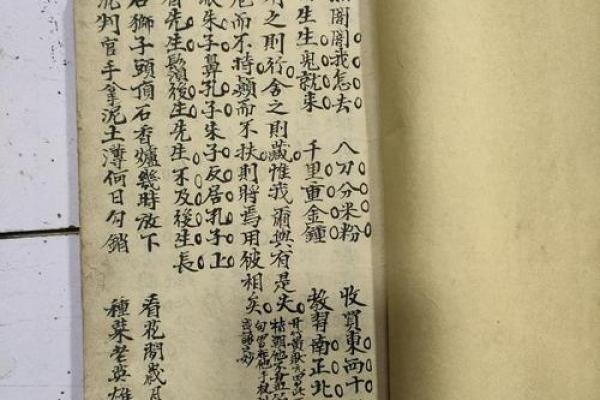 我怎去　八刀分米粉　收買東西十
生生鬼就来　千里重金鍾　教習南正北
之則行舍之則藏惟我爾與有是夫
而不持顛而不扶則將焉用彼相矣
朱子鼻孔子朱子反居孔子上
先生鬚後生先生不及後生長
石獅子頭頂石香爐幾時放下　看花閒歲月
判官手拿泥土薄何日勾銷　種菜老英雄